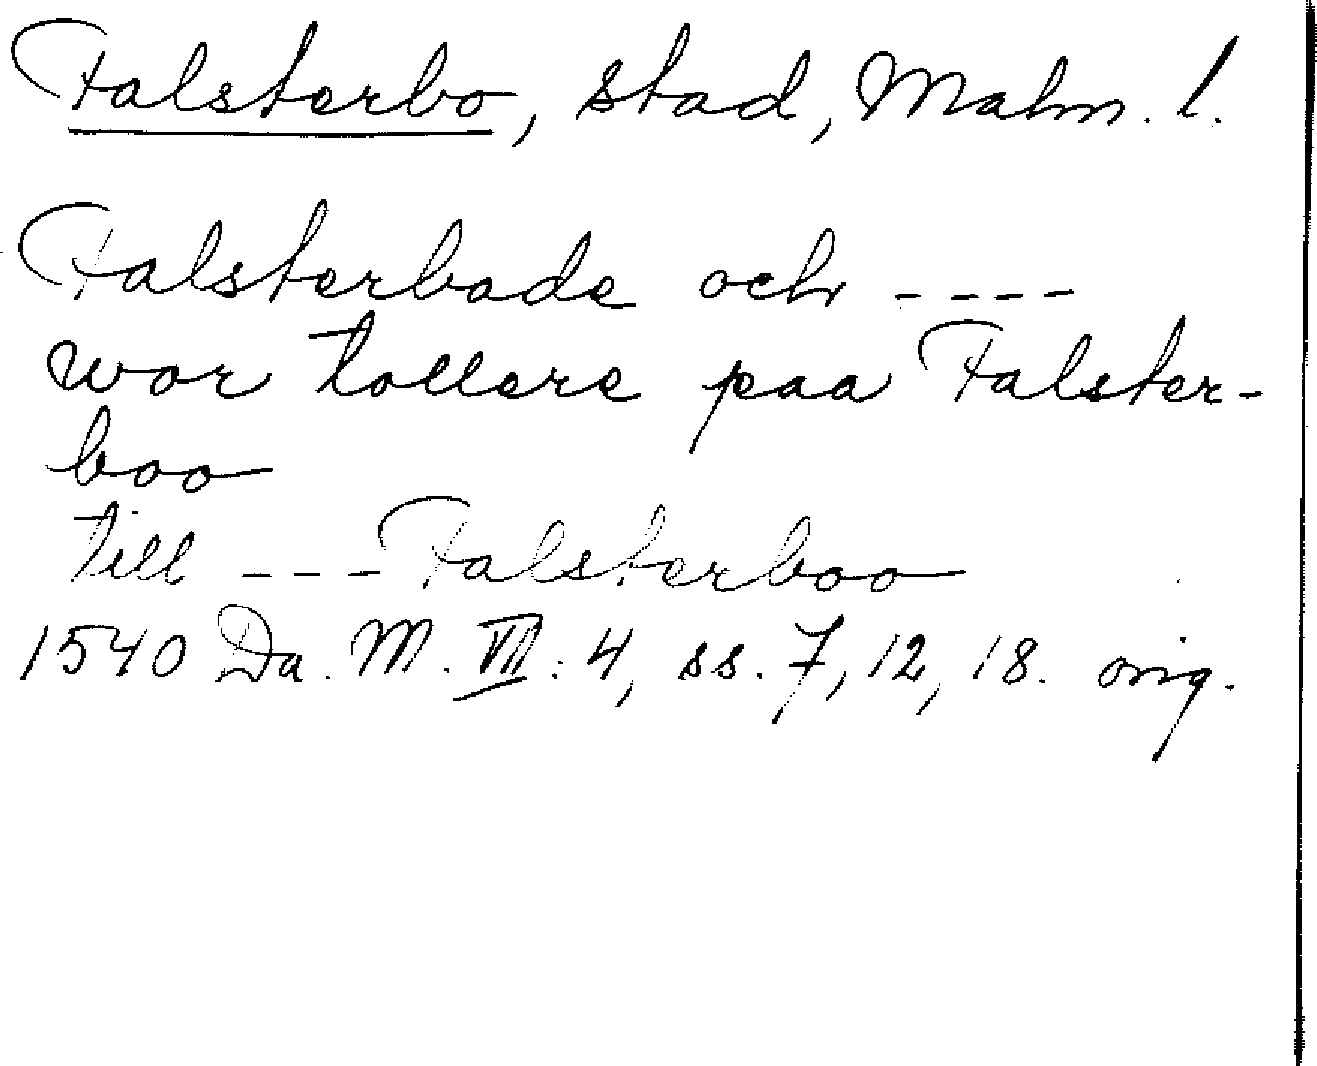 Falsterbo, stad, Malm. l.
Falsterbode och ----
wor tollere paa Falster-
boo
till --- Falsterboo
1540 Da. M. VII: 4, ss. 7, 12, 18. orig.